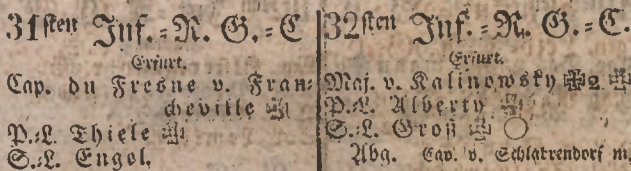 31sten Inf.=R. G.=C
Erfurt.
Cap. du Fresne v. Fran=
cheville
P.=L. Thiele
S.=L. Engel.
32sten Inf.=R. G.=C.
Erfurt.
Maj. v. Kalinowsky 2.
P.=L. Alberty
S.=L. Groß
Abg. Cap. v. Schlatrendorf m.